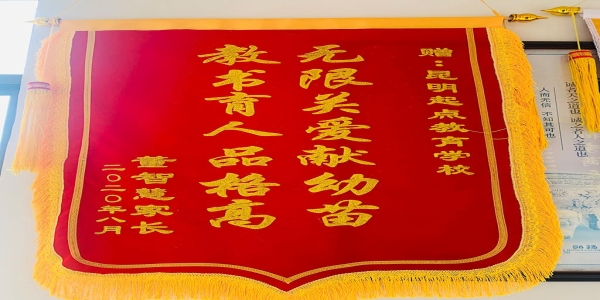 赠：昆明起点教育学校
无限关爱献幼苗
教书育人品格高
董智慧家长
二〇二〇年八月
诚者天之道也 诚之者人之道也
人而无信 不知其可也